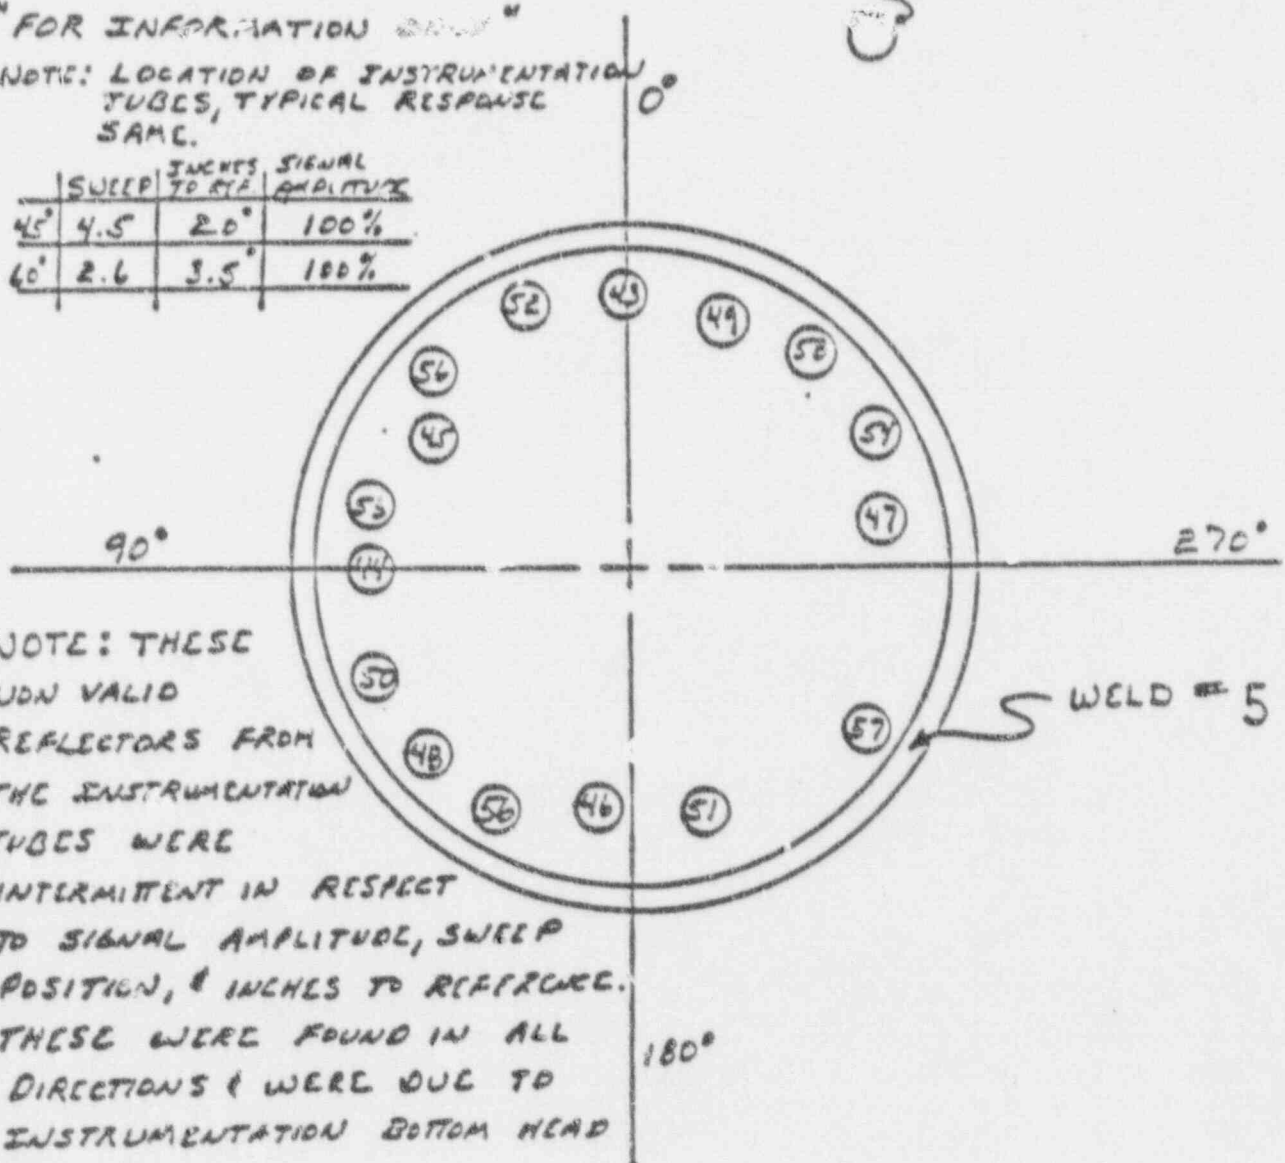 "FOR INFORMATION "
NOTE: LOCATION OF INSTRUMENTATION
TUBES, TYPICAL RESPONSE
SAME.
SWEEP INCHES TO REF. SIGNAL AMPLITUDE
45° 4.5 2.0" 100%
60° 2.6 3.5" 100%
0°
52 43 49
56
45
54
47
90°
270°
44
NOTE: THESE
NON VALID
REFLECTORS FROM
THE INSTRUMENTATION
TUBES WERE
INTERMITTENT IN RESPECT
TO SIGNAL AMPLITUDE, SWEEP
POSITION, & INCHES TO REFERENCE.
THESE WERE FOUND IN ALL
DIRECTIONS & WERE DUE TO
INSTRUMENTATION BOTTOM HEAD
50
48
56 46 51
57
WELD = 5
180°